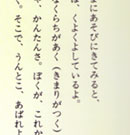 まにあそびにきてみると、
は、くよくよしているよ。
なくらちがあく（きまりがつく）
や、かんたんさ。ぼくが、これか
く。そこで、うんとこ、あばれよ